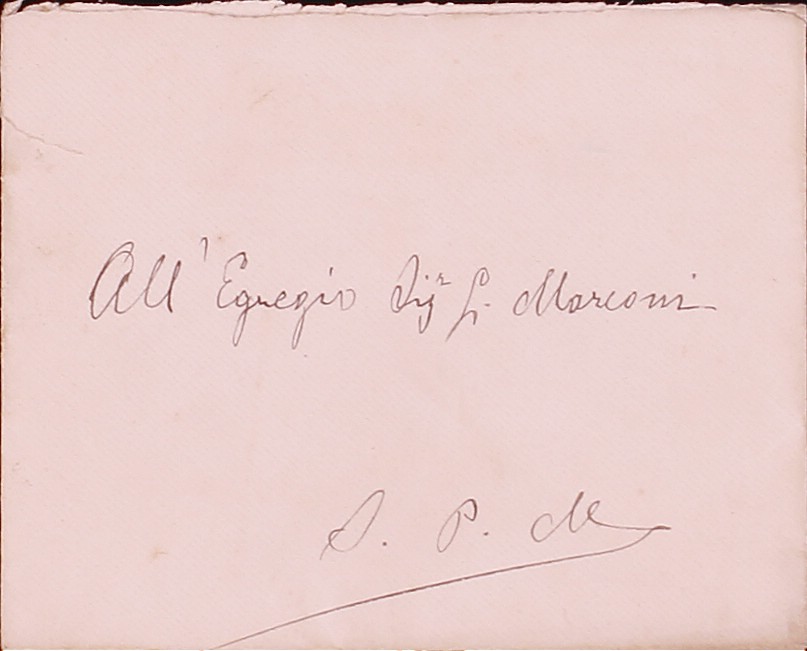 All'Egregio Sigr G. Marconi
S. P. M